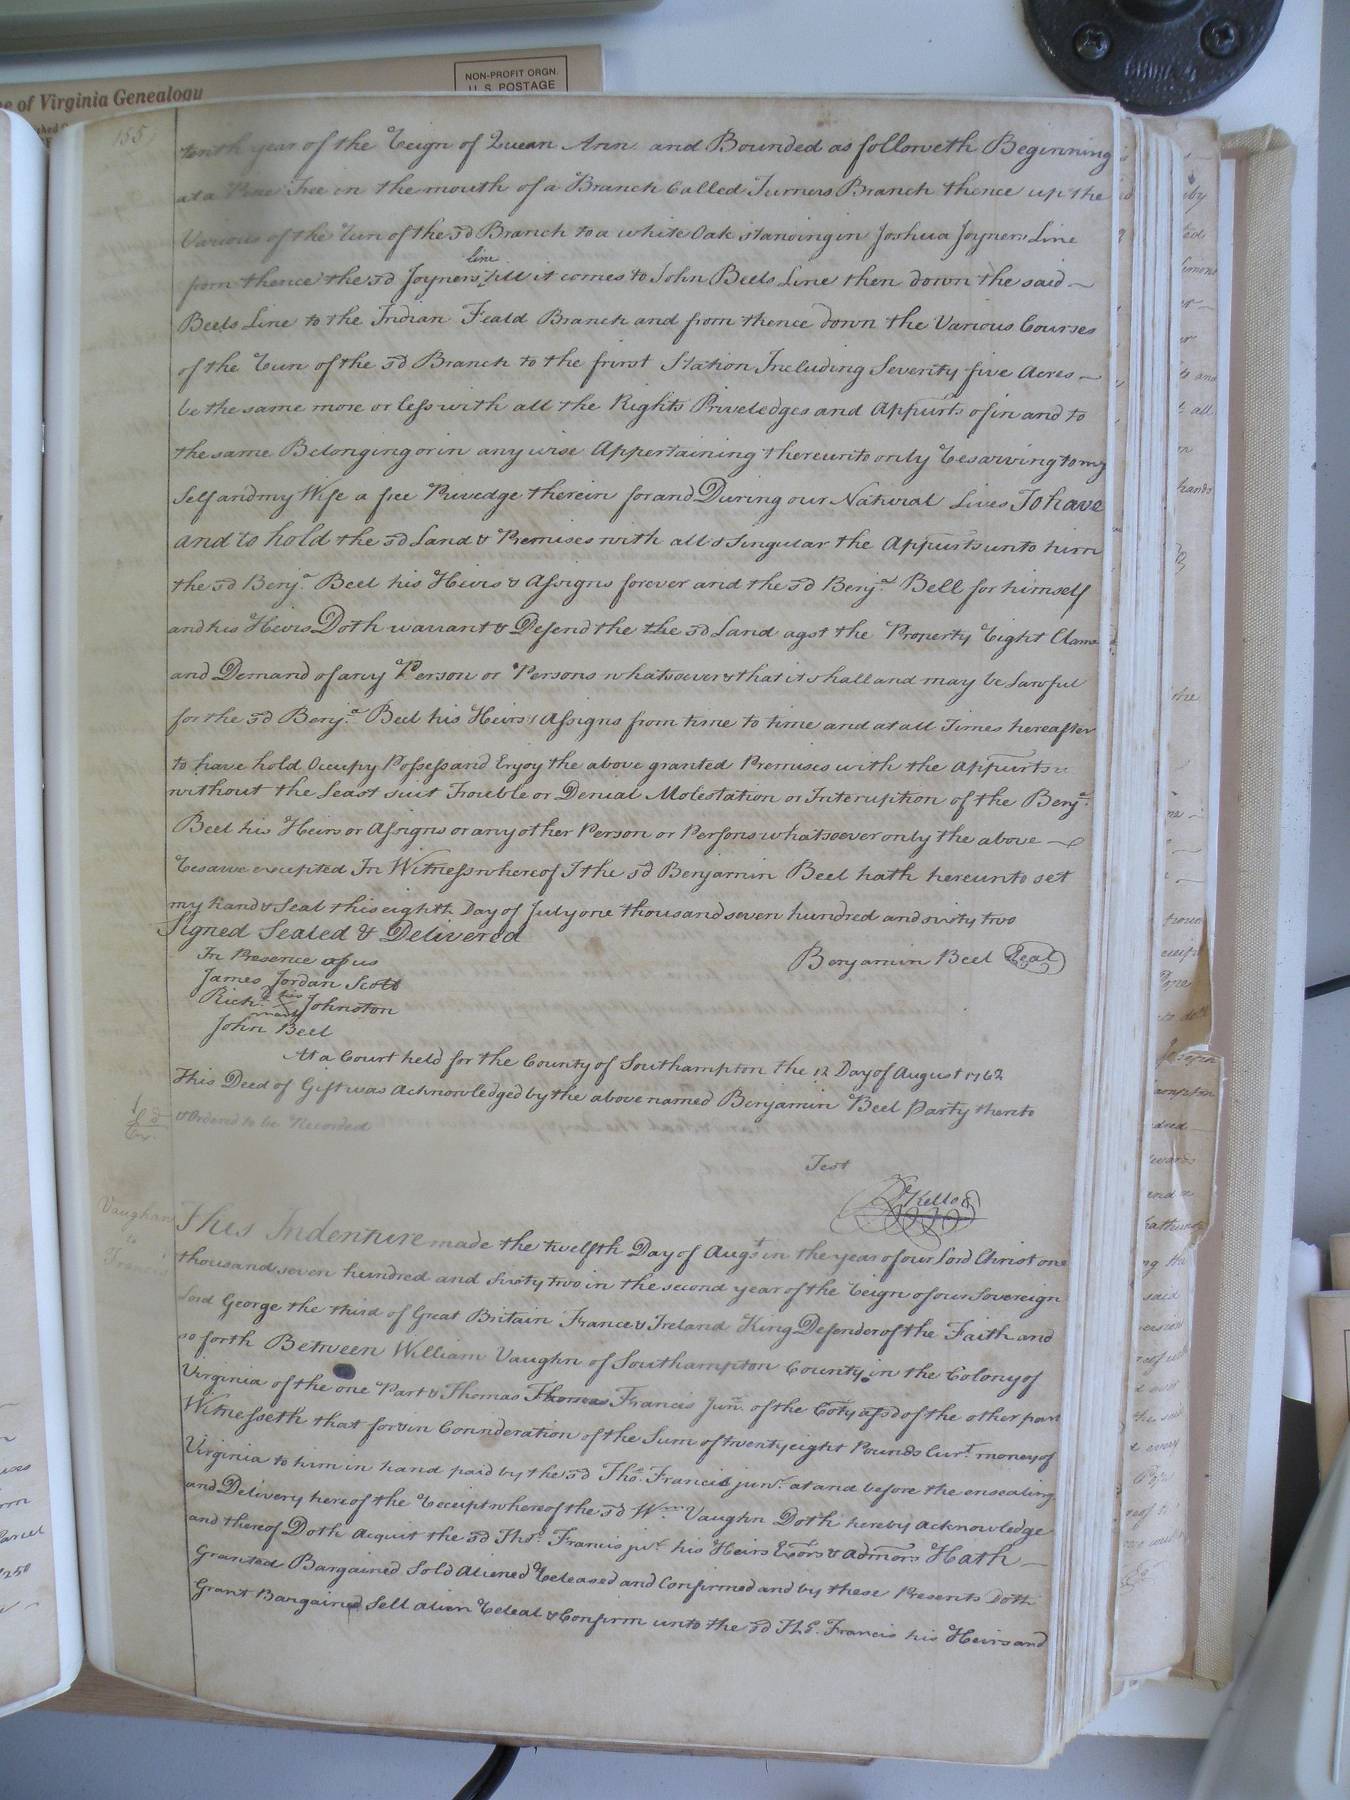 NON-PROFIT ORGN.
U.S. POSTAGE
of Virginia Genealogy
155
tenth year of the Reign of Quean Ann and Bounded as followeth Beginning
at a Pine Tree in the mouth of a Branch Called Turners Branch thence up the
Various of the Run of the sd Branch to a white Oak standing in Joshua Joyners Line
from thence the sd Joyners Line till it comes to John Bells Line then down the said
Bells Line to the Indian Feald Branch and from thence down the Various Courses
of the Run of the sd Branch to the first Station Including Seventy five Acres
be the same more or less with all the Rights Priveledges and Appurts of in and to
the same Belonging or in any wise Appertaining thereunto only Resarving to my
Self and my Wife a free Privedge therein for and During our Natural Lives To have
and to hold the sd Land & Premises with all & Singular the Appurts unto him
the sd Benja. Bell his Heirs & Assigns forever and the sd Benja. Bell for himself
and his Heirs Doth warrant & Defend the the sd Land agst the Property Right Clame
and Demand of any Person or Persons whatsoever & that it shall and may be Lawful
for the sd Benja. Bell his Heirs & Assigns from time to time and at all Times hereafter
to have hold Occupy Possess and Enjoy the above granted Premises with the Appurts
without the Least suit Trouble or Denial Molestation or Interuption of the Benja.
Bell his Heirs or Assigns or any other Person or Persons whatsoever only the above
Resarve excepted In Witness whereof I the sd Benjamin Bell hath hereunto set
my Hand & Seal this eighth Day of July one thousand seven hundred and sixty two
Signed Sealed & Delivered
In Presence of us
Benjamin Bell Seal
James Jordan Scott
Richd. his mark Johnston
John Bell
At a Court held for the County of Southampton the 12 Day of August 1762
This Deed of Gift was Acknowledged by the above named Benjamin Bell Party thereto
& Ordered to be Recorded
Test
Kello
Vaughan
to
Francis
This Indenture made the twelfth Day of Augt in the year of our Lord Christ one
thousand seven hundred and sixty two in the second year of the Reign of our Sovereign
Lord George the third of Great Britain France & Ireland King Defender of the Faith and
so forth Between William Vaughn of Southampton County in the Colony of
Virginia of the one Part & Thomas Thomas Francis junr. of the Coty afsd of the other part
Witnesseth that for & in Consideration of the Sum of twenty eight Pounds Curt. money of
Virginia to him in hand paid by the sd Thos. Francis junr. at and before the ensealing
and Delivery hereof the Receipt whereof the sd Wm. Vaughn Doth hereby Acknowledge
and thereof Doth Acquit the sd Thos. Francis jur. his Heirs Exors & Admors Hath
Granted Bargained Sold Aliened Released and Confirmed and by these Presents Doth
Grant Bargained Sell Alien Releas & Confirm unto the sd Thos. Francis his Heirs and